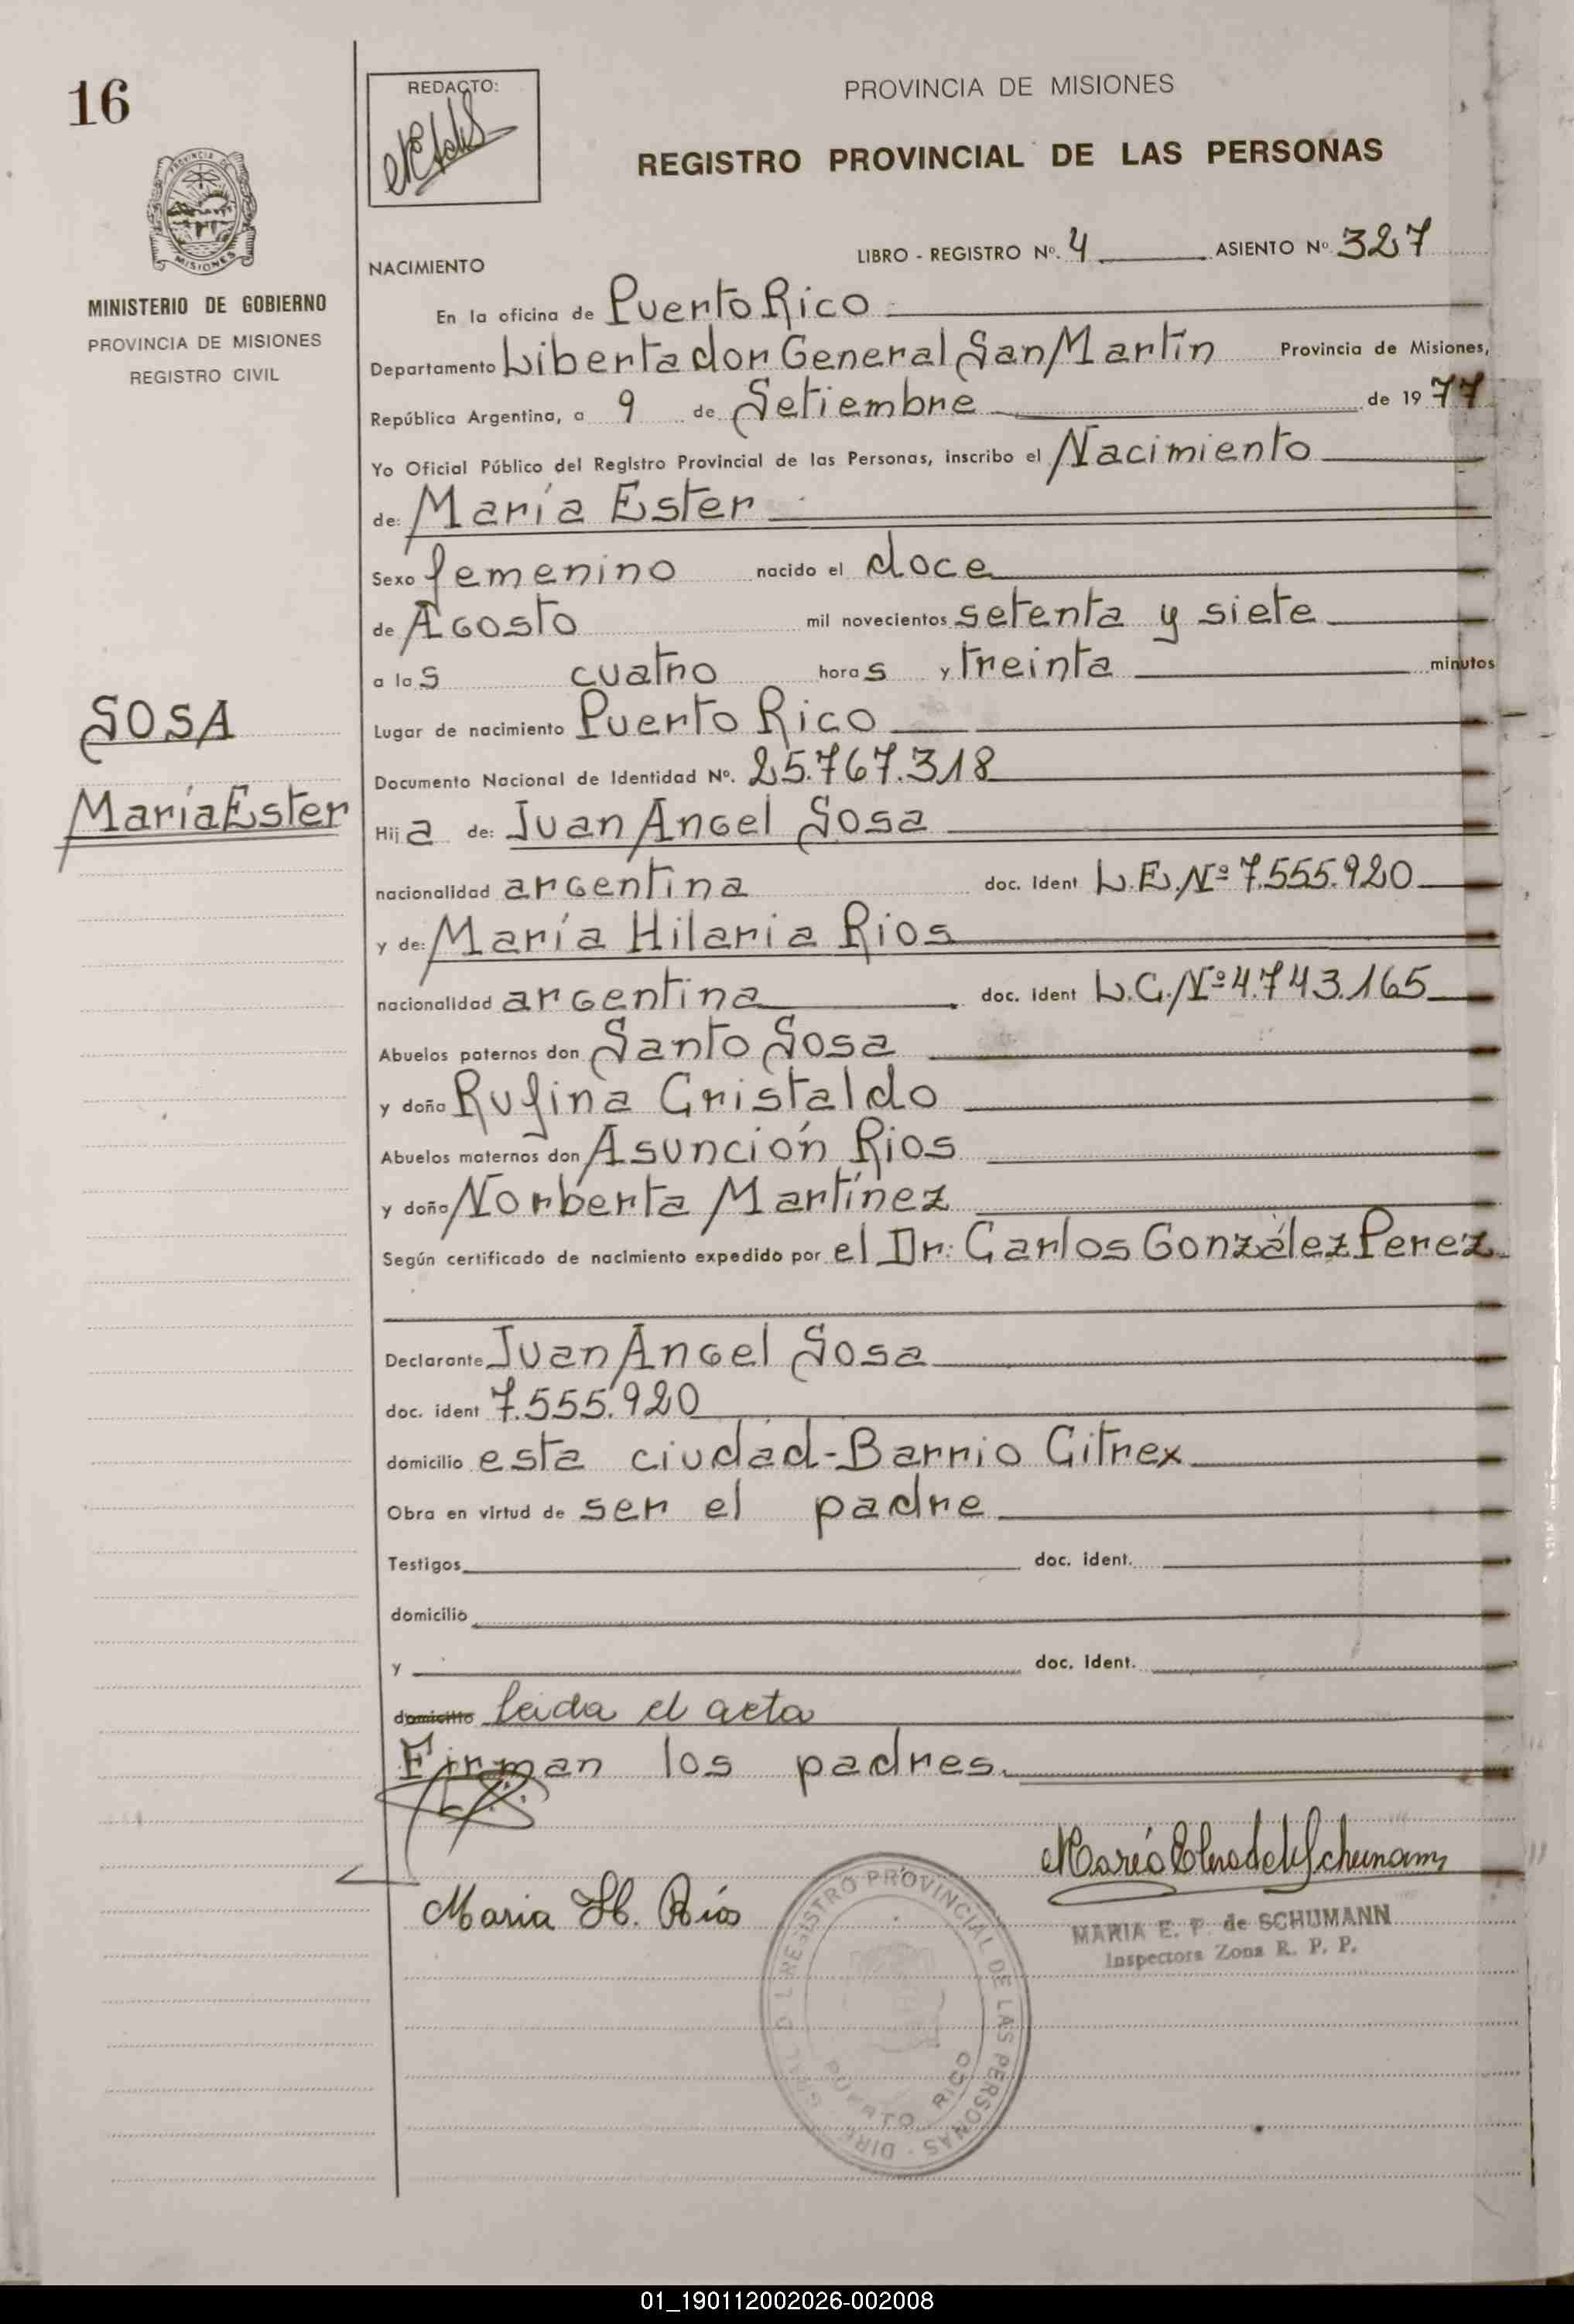 16
REDACTO:
PROVINCIA DE MISIONES
REGISTRO PROVINCIAL DE LAS PERSONAS
PROVINCIA DE
MISIONES
MINISTERIO DE GOBIERNO
PROVINCIA DE MISIONES
REGISTRO CIVIL
LIBRO - REGISTRO Nº. 4 ASIENTO Nº 327
NACIMIENTO
En la oficina de Puerto Rico
Departamento Libertador General San Martín Provincia de Misiones,
República Argentina, a 9 de Setiembre de 1977
Yo Oficial Público del Registro Provincial de las Personas, inscribo el Nacimiento
de: María Ester
Sexo femenino nacido el doce
de Agosto mil novecientos setenta y siete
a las cuatro horas y treinta minutos
SOSA
María Ester
Lugar de nacimiento Puerto Rico
Documento Nacional de Identidad Nº. 25.767.318
Hija de: Juan Angel Sosa
nacionalidad argentina doc. Ident L.E. Nº 7.555.920
y de: María Hilaria Rios
nacionalidad argentina doc. Ident L.C. Nº 4.743.165
Abuelos paternos don Santo Sosa
y doña Rufina Cristaldo
Abuelos maternos don Asunción Rios
y doña Norberta Martínez
Según certificado de nacimiento expedido por el Dr: Carlos González Perez
Declarante Juan Angel Sosa
doc. ident 7.555.920
domicilio esta ciudad-Barrio Citrex
Obra en virtud de ser el padre
Testigos doc. ident.
domicilio
y doc. ident.
domicilio leida el acta
Firman los padres.
Maria H. Ríos
MARIA E. P. de SCHUMANN
Inspectora Zona R. P. P.
REGISTRO PROVINCIAL DE LAS PERSONAS
PUERTO RICO
01_190112002026-002008